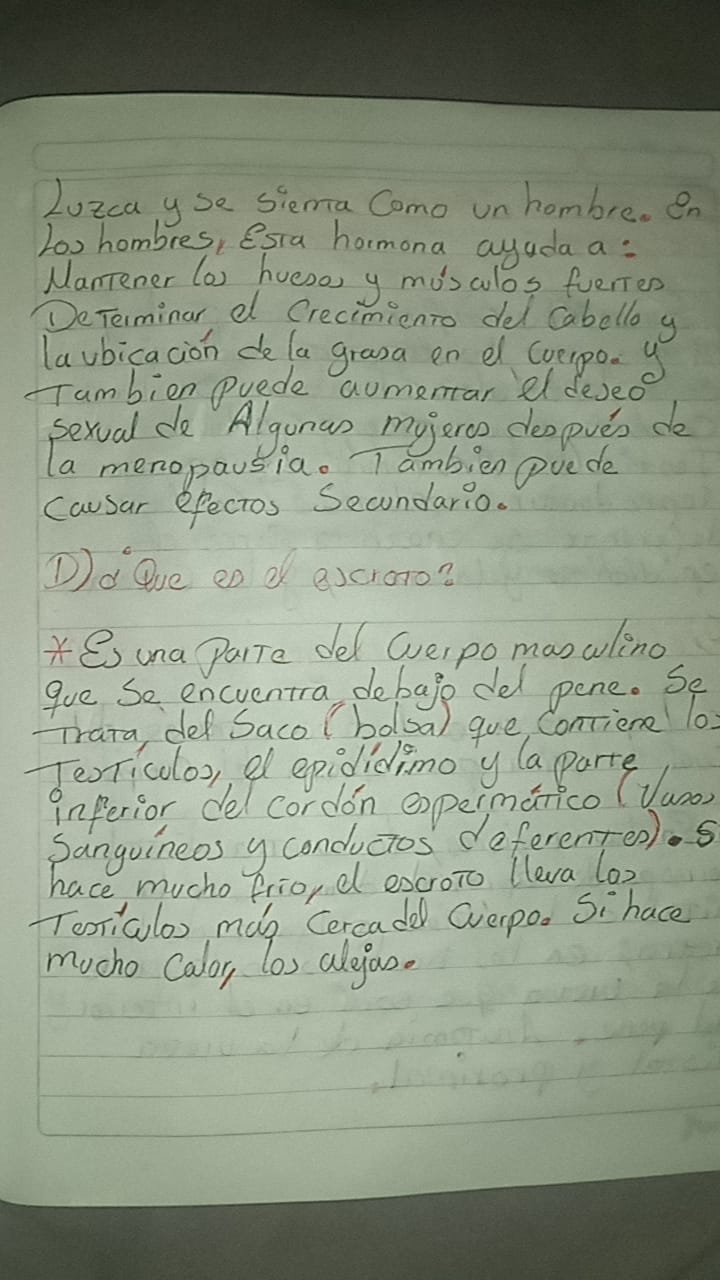 Luzca y se sienta Como un hombre. En
los hombres, Esta hormona ayuda a:
Mantener los huesos y músculos fuertes
Determinar el Crecimiento del Cabello y
la ubicación de la grasa en el cuerpo. y
Tambien puede aumentar el deseo
sexual de Algunas mujeres después de
la menopausia. Tambien puede
causar efectos Secundario.
D) ¿Que es el escroto?
* Es una Parte del Cuerpo masculino
que Se encuentra debajo del pene. Se
Trata, del Saco (bolsa) que, Contiene los
Testículos, el epidídimo y la parte
inferior del cordón espermático (Vasos
Sanguíneos y conductos deferentes). S
hace mucho frio, el escroto lleva los
Testículos más Cerca del Cuerpo. Si hace
mucho Calor, los alejas.